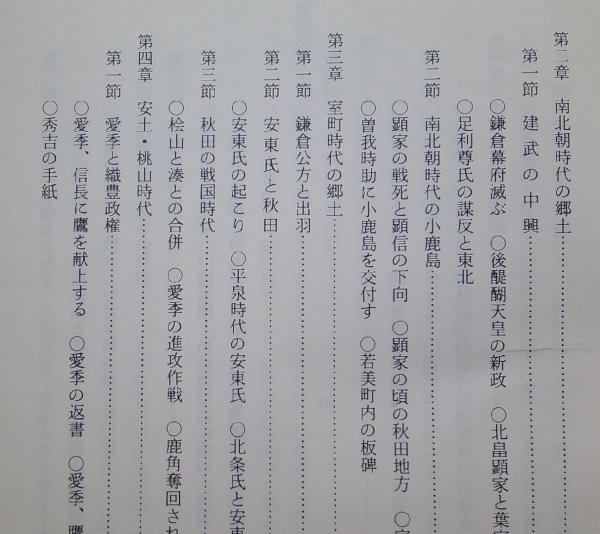 第二章 南北朝時代の郷土……………………
第一節 建武の中興……………………
〇鎌倉幕府滅ぶ 〇後醍醐天皇の新政 〇北畠顕家と葉室
〇足利尊氏の謀反と東北
第二節 南北朝時代の小鹿島……………………
〇顕家の戦死と顕信の下向 〇顕家の頃の秋田地方 〇
〇曽我時助に小鹿島を交付す 〇若美町内の板碑
第三章 室町時代の郷土……………………
第一節 鎌倉公方と出羽……………………
第二節 安東氏と秋田……………………
〇安東氏の起こり 〇平泉時代の安東氏 〇北条氏と安東
第三節 秋田の戦国時代……………………
〇桧山と湊との合併 〇愛季の進攻作戦 〇鹿角奪回され
第四章 安土・桃山時代……………………
第一節 愛季と織豊政権……………………
〇愛季、信長に鷹を献上する 〇愛季の返書 〇愛季、鷹
〇秀吉の手紙